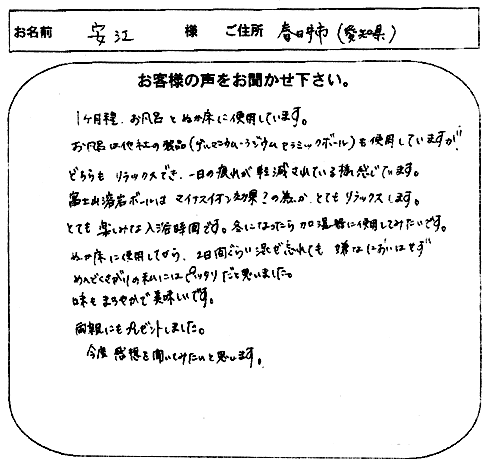 お名前 安江 様 ご住所 春日井市(愛知県)
お客様の声をお聞かせ下さい。
1ヶ月程、お風呂とぬか床に使用しています。
お風呂は他社の製品(ゲルマニウム・ラジウムセラミックボール)も使用していますが
どちらもリラックスでき、一日の疲れが軽減されている様に感じています。
富士山溶岩ボールはマイナスイオン効果?の為か、とてもリラックスします。
とても楽しみな入浴時間です。冬になったら加湿器に使用してみたいです。
ぬか床に使用してから、2日間ぐらい混ぜ忘れても嫌なにおいはせず
めんどくさがりの私にはピッタリだと思いました。
味もまろやかで美味しいです。
両親にもプレゼントしました。
今度感想を聞いてみたいと思います。